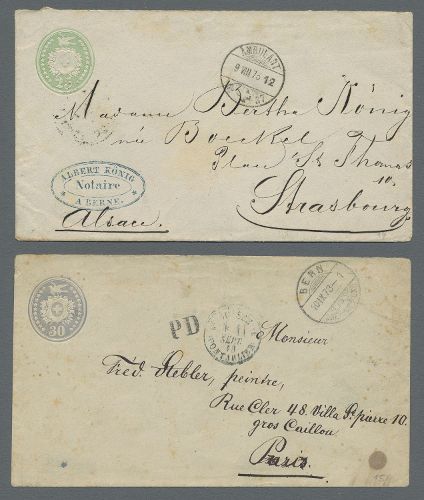 AMBULANT
9 VIII 73 12
Madame Bertha König
née Boeckel
Place St Thomas
10.
Strasbourg
Alsace.
ALBERT KÖNIG
Notaire
A BERNE.
30
PD
BERN
10 IX 73 1
11
SEPT
PONTARLIER
Monsieur
Fréd. Stebler, peintre,
Rue Cler 48. Villa St. pierre 10.
gros Caillou
Paris.